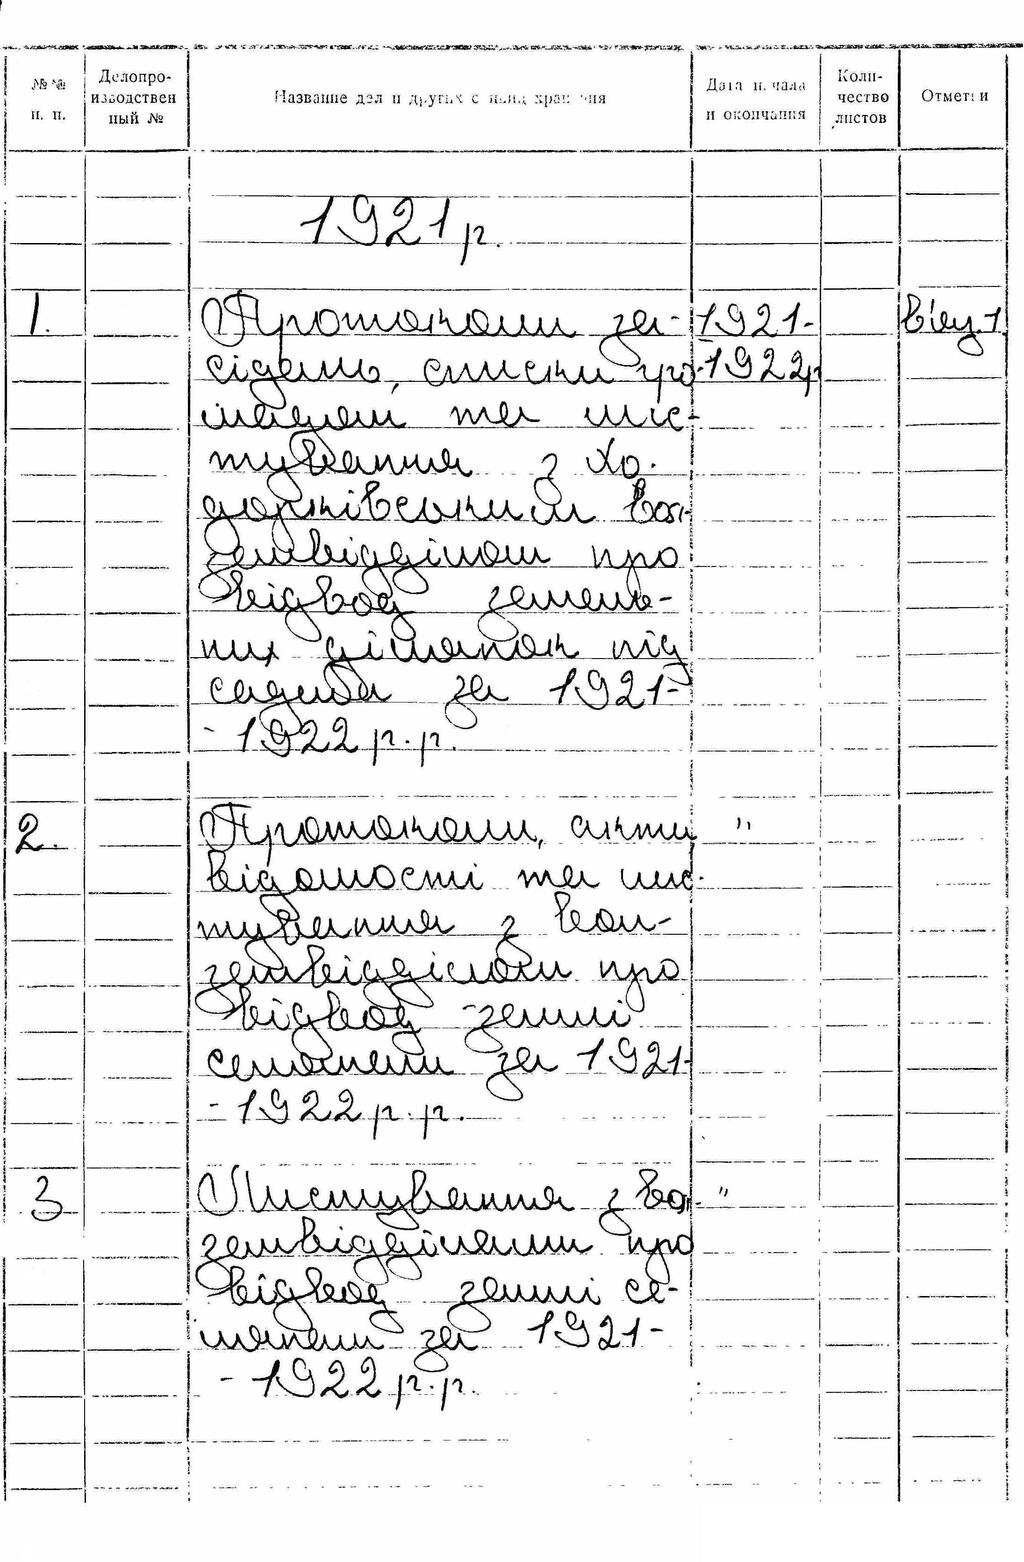 №№ п. п.
Делопро-
изводствен
ный №
Название дел и других единиц хранения
Дата начала
и окончания
Коли-
чество
листов
Отметки
1921 р.
1. Протоколи за- 1921-
сідань, списки гро- -1922 р.
мадян та лис-
тування з Хо-
дорківським вол-
земвідділом про
відвод земель-
них ділянок під
садиби за 1921-
- 1922 р.р.
2. Протоколи, акти, "
відомості та лис-
тування з вол-
земвідділом про
відвод землі
селянам за 1921-
- 1922 р.р.
3 Листування з вол- "
земвідділами про
відвод землі се-
лянам за 1921-
- 1922 р.р.